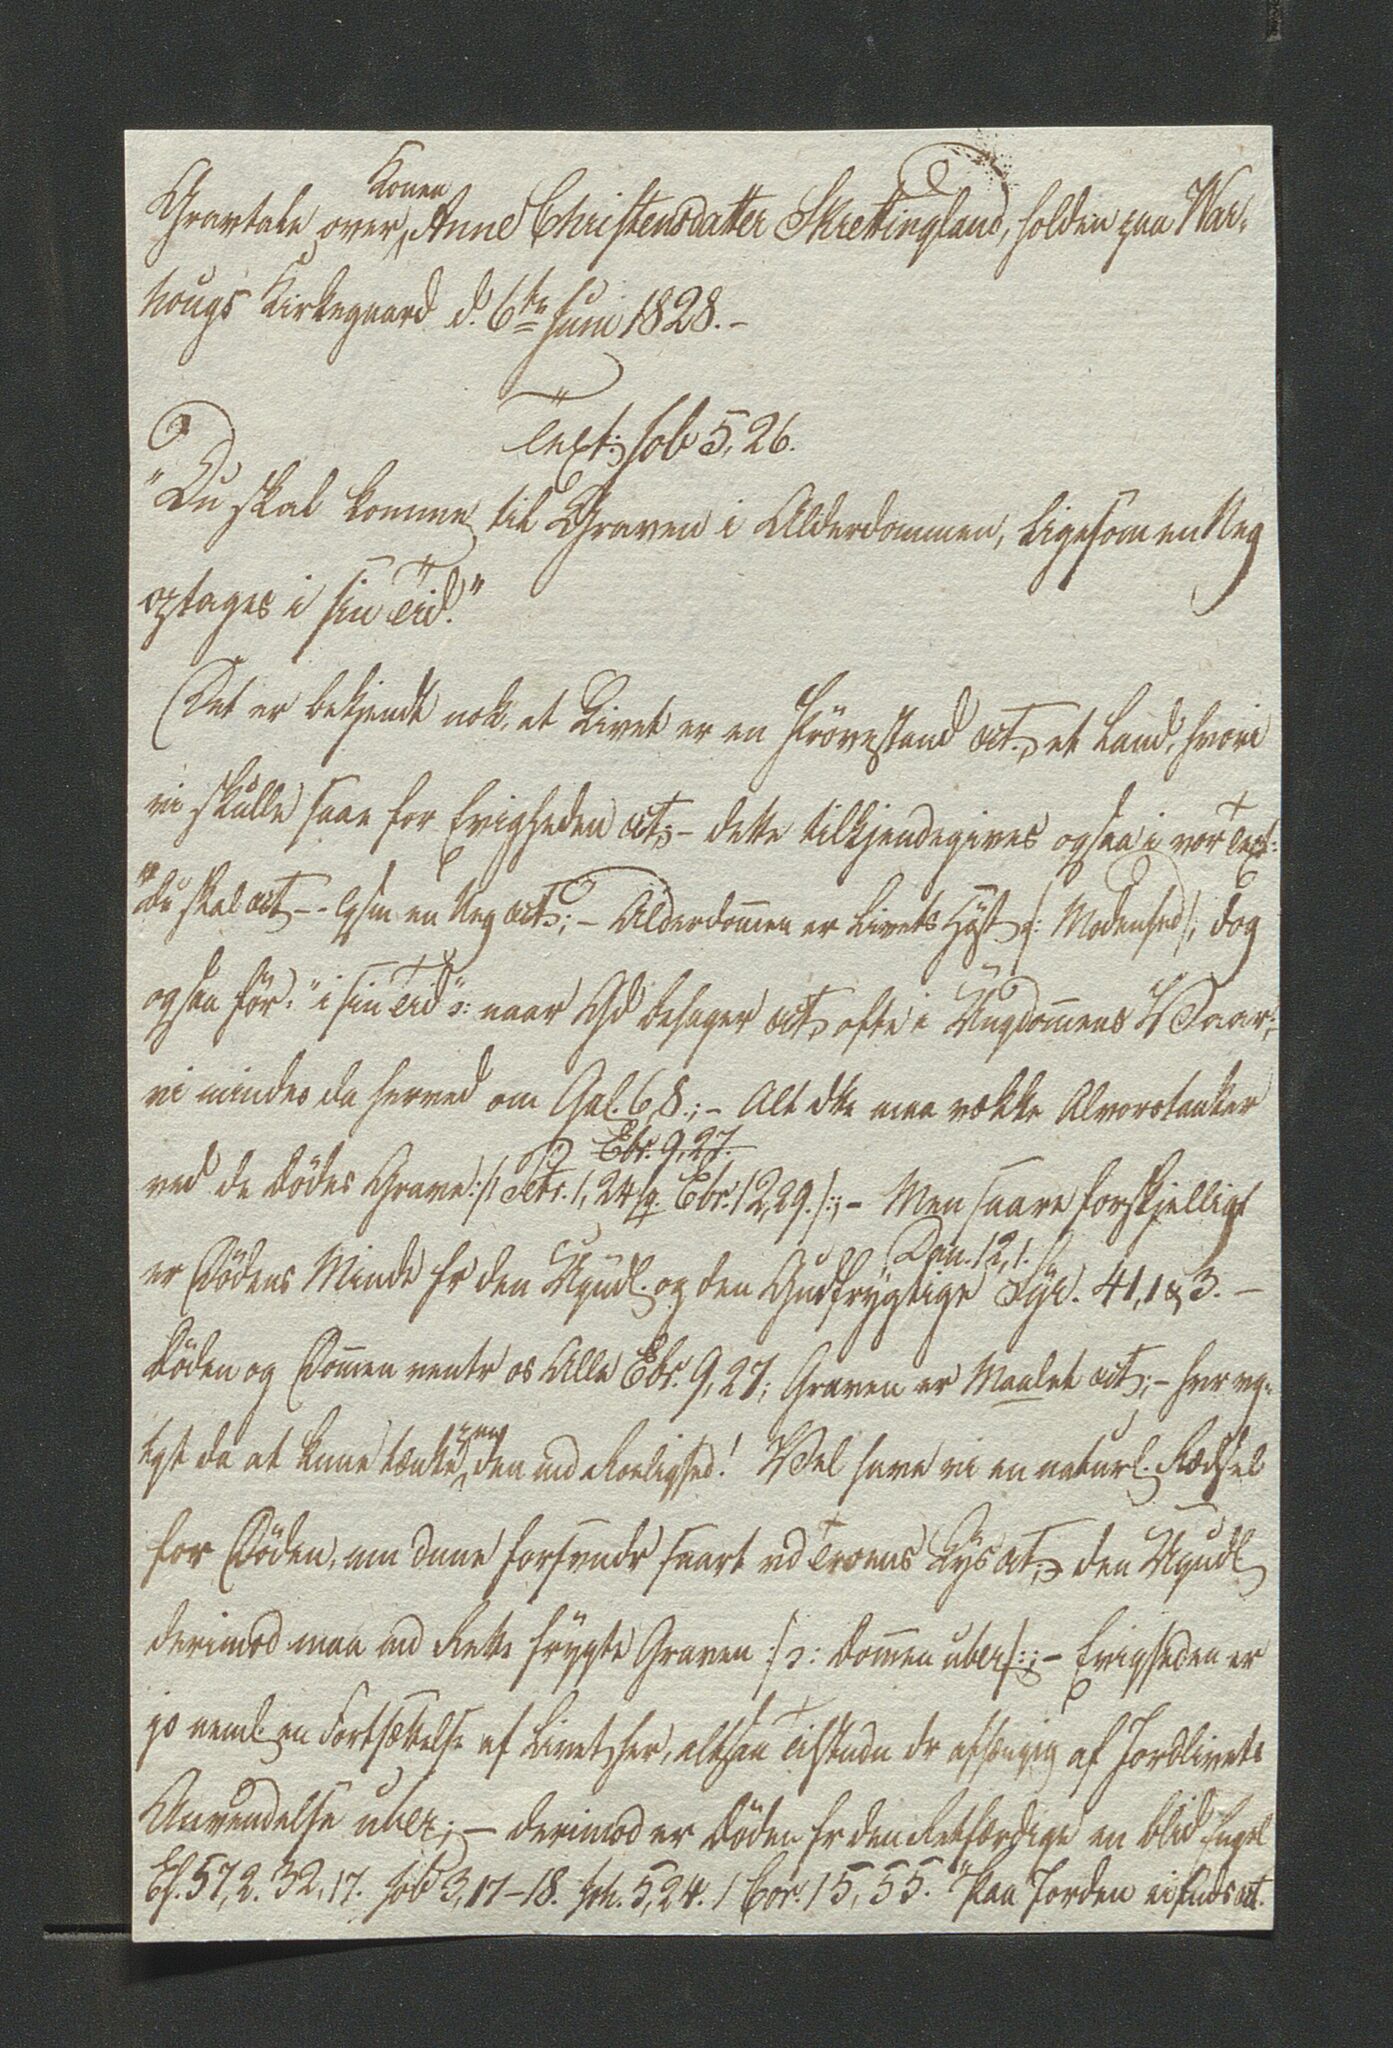 Konen
Gravtale over Anne Christensdatter Skrettingland, holden paa War-
hougs Kirkegaard d. 6te Juni 1828.-
Text: Job 5,26.
"Du skal komme til Graven i Alderdommen, ligesom en Neg
optages i sin Tid."
Det er bekjendt nok, at Livet er en Prövestand cet., et Land, hvori
vi skulle saae for Evigheden cet; - dette tilkjendegives ogsaa i vor Text:
"du skal cet -- lgsm en Neg cet"; - Alderdom̅en er Livets Høst /: Modenhed/, dog
ogsaa för: "i sin Tid" ɔ: naar Gd behager cet, ofte i Ungdom̅ens Vaar;
vi mindes da herved om Gal. 6,8.; - Alt dtte maa vække Alvorstanker
Ebr. 9,27.
ved de Dödes Grave :/1 Petr. 1,24 sq. Ebr. 12,29./:; - Men saare forskjelligt
Dan. 12,1.
er Dödens Minde fr den Ugudl. og den Gudfrygtige Syr. 41,1 & 3. -
Döden og Dom̅en ventr os Alle Ebr. 9,27; Graven er Maalet cet; - hvor vg-
tgt da at kune tænke paa den md Roelighed! Vel have vi en naturl. Rædsel
for Döden, mn denne forsvindr snart vd Troens Lys cet, den Ugudl
derimod maa md Rette frygte Graven :/ɔ: Dom̅en uber/:; - Evigheden er
jo neml en Fortsættelse af Livet her, altsaa Tilstndn dr afhængig af Jordlivets
Anvendelse uber; - derimod er Döden fr den Retfærdige en blid Engel
Es. 57,2. 32,17. Job 3,17-18. Joh. 5,24. 1 Cor. 15,55. "Paa Jorden ei finds cet.